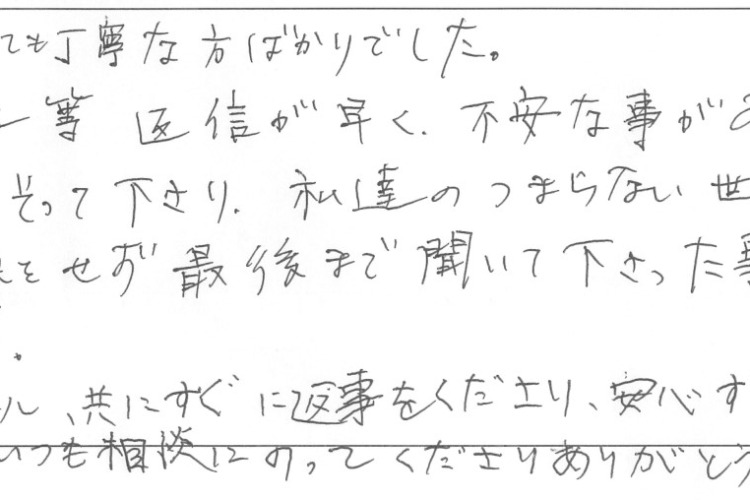 ても丁寧な方ばかりでした。
ー等 返信が早く、不安な事が
って下さり、私達のつまらない世
をせず最後まで聞いて下さった事
ル、共にすぐに返事をくださり、安心す
いつも相談にのってくださりありがとう